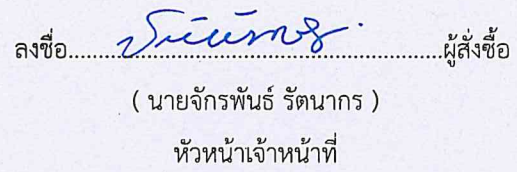 ลงชื่อ.......................................................ผู้สั่งซื้อ
( นายจักรพันธ์ รัตนากร )
หัวหน้าเจ้าหน้าที่